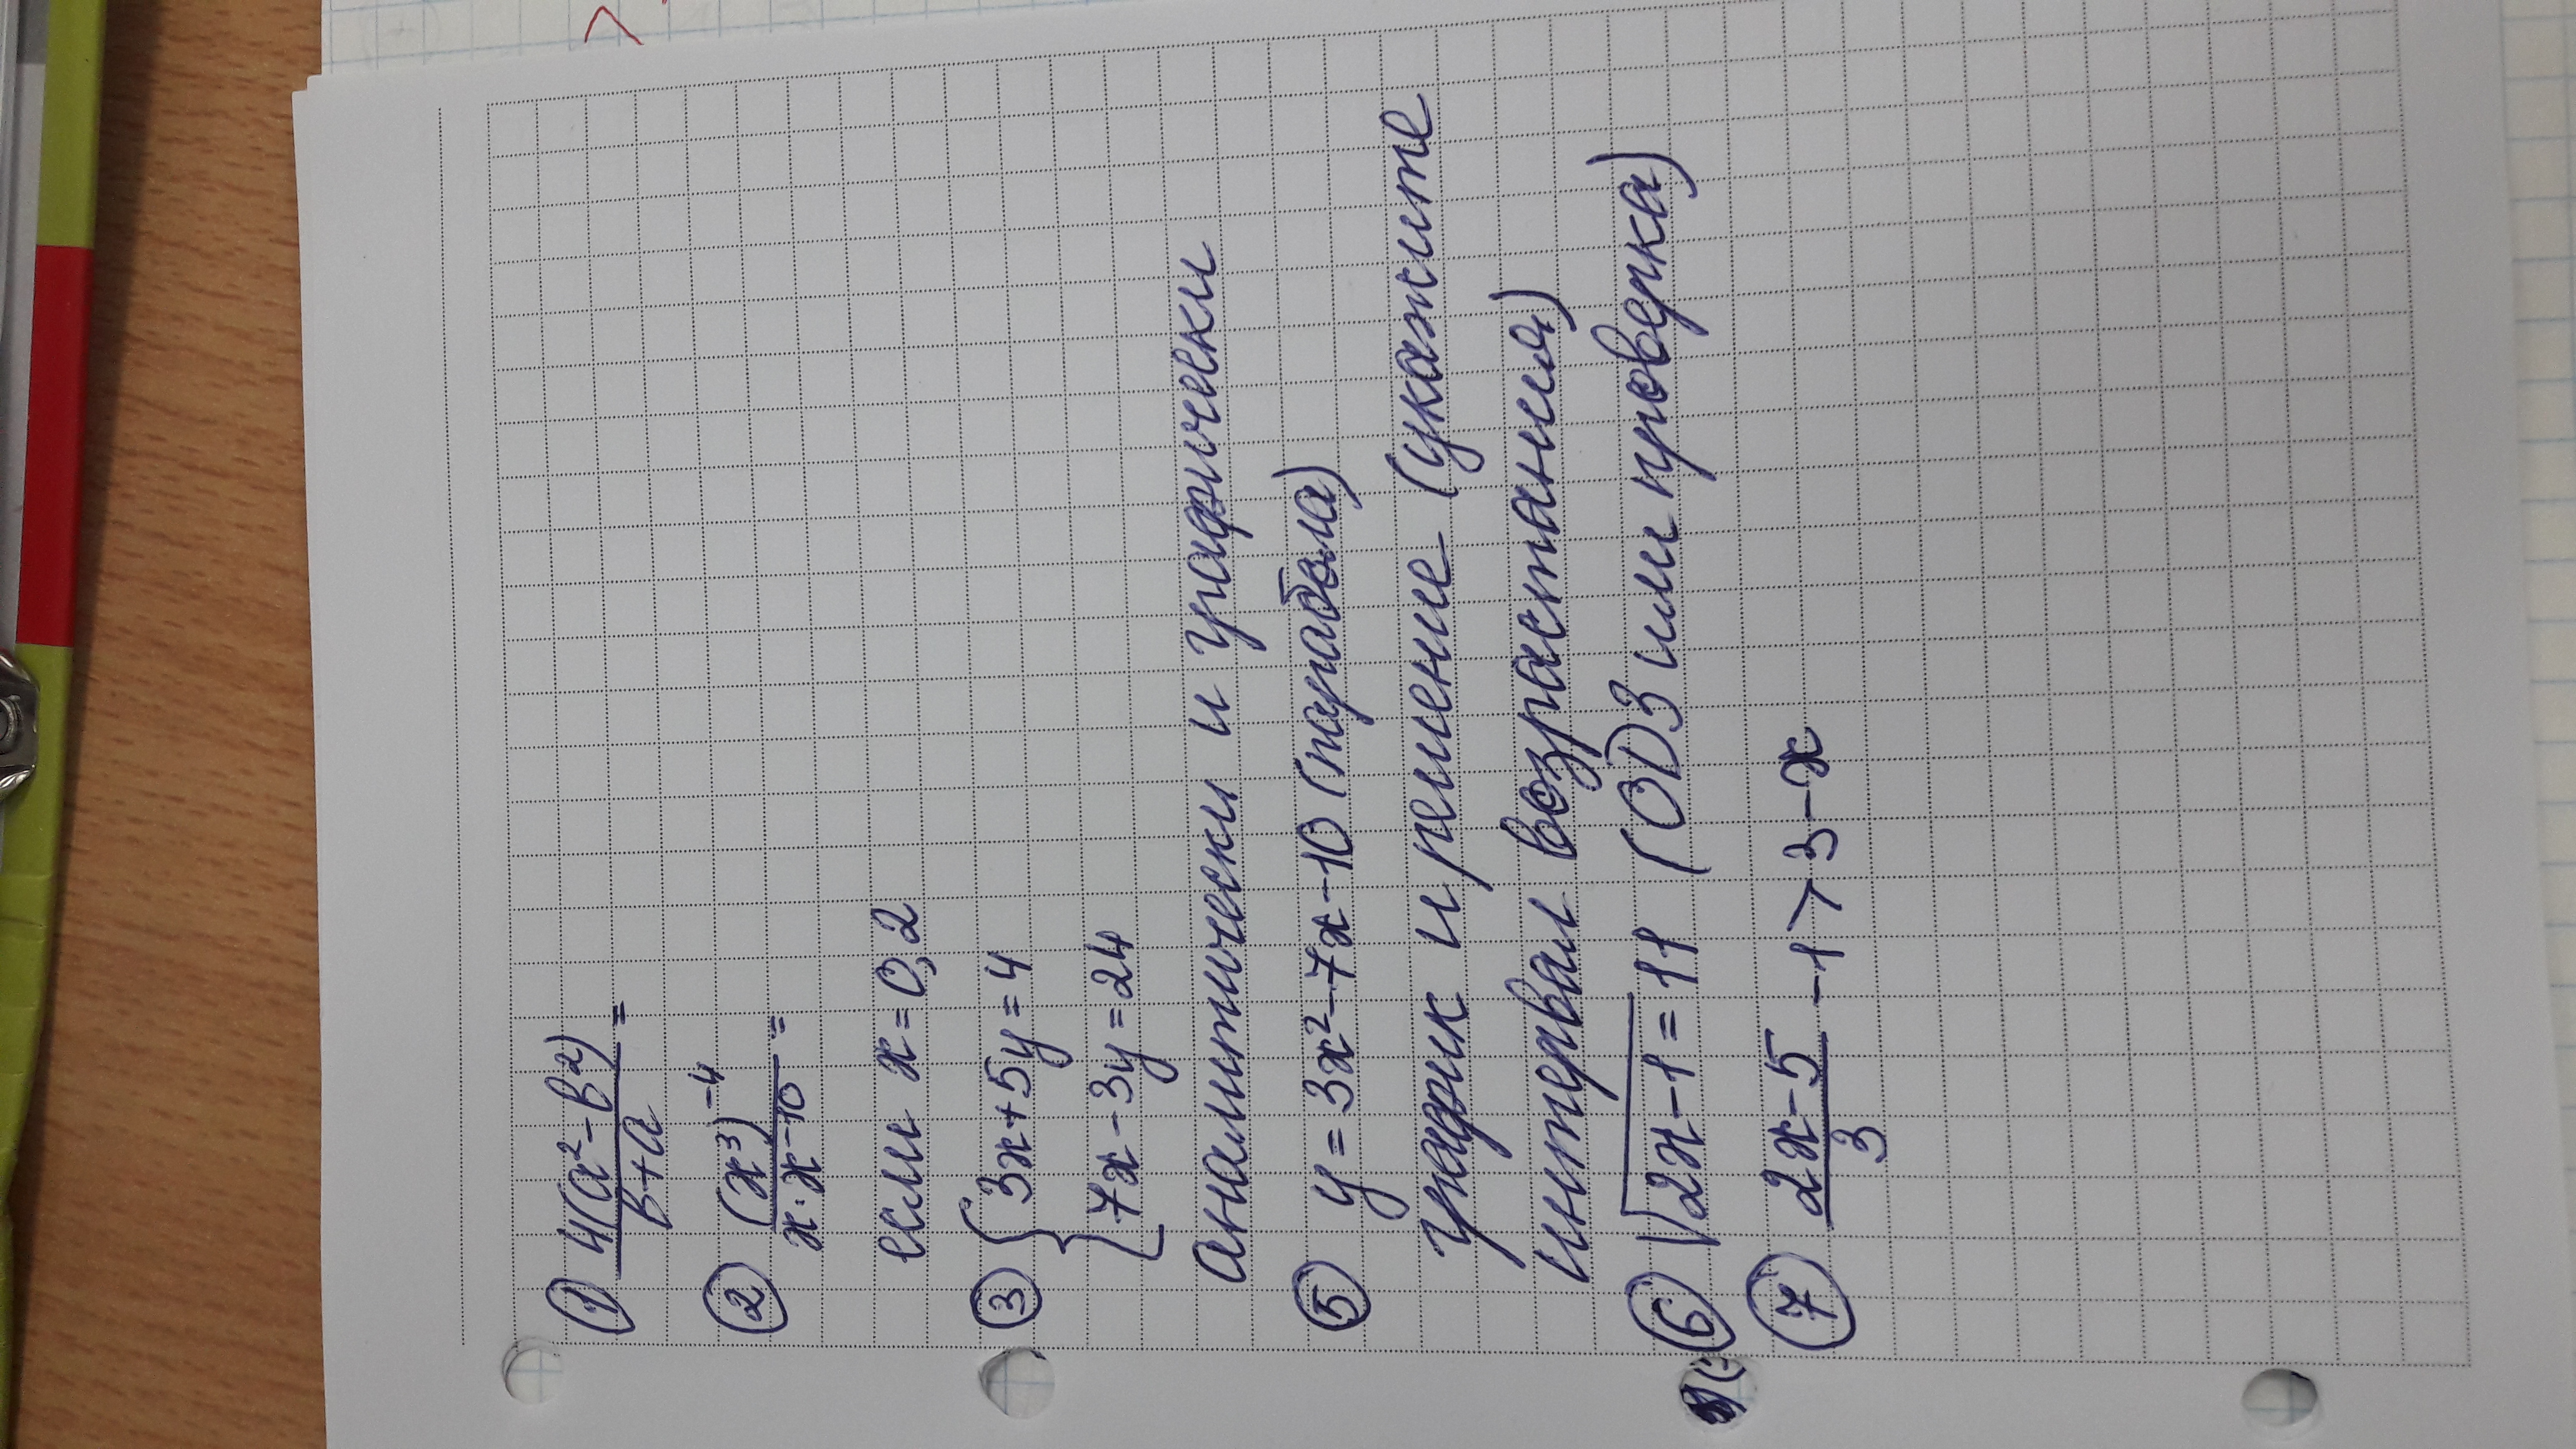 ① 4(a²-b²)/b+a =
② (x³)⁻⁴/x·x⁻¹⁰ =
если x=0,2
③ {3x+5y=4
{7x-3y=24
аналитически и графически
⑤ y=3x²-7x-10 (парабола)
график и решение (укажите
интервал возрастания)
⑥ √2x-1=11 (ОДЗ или проверка)
⑦ 2x-5/3 -1>3-x